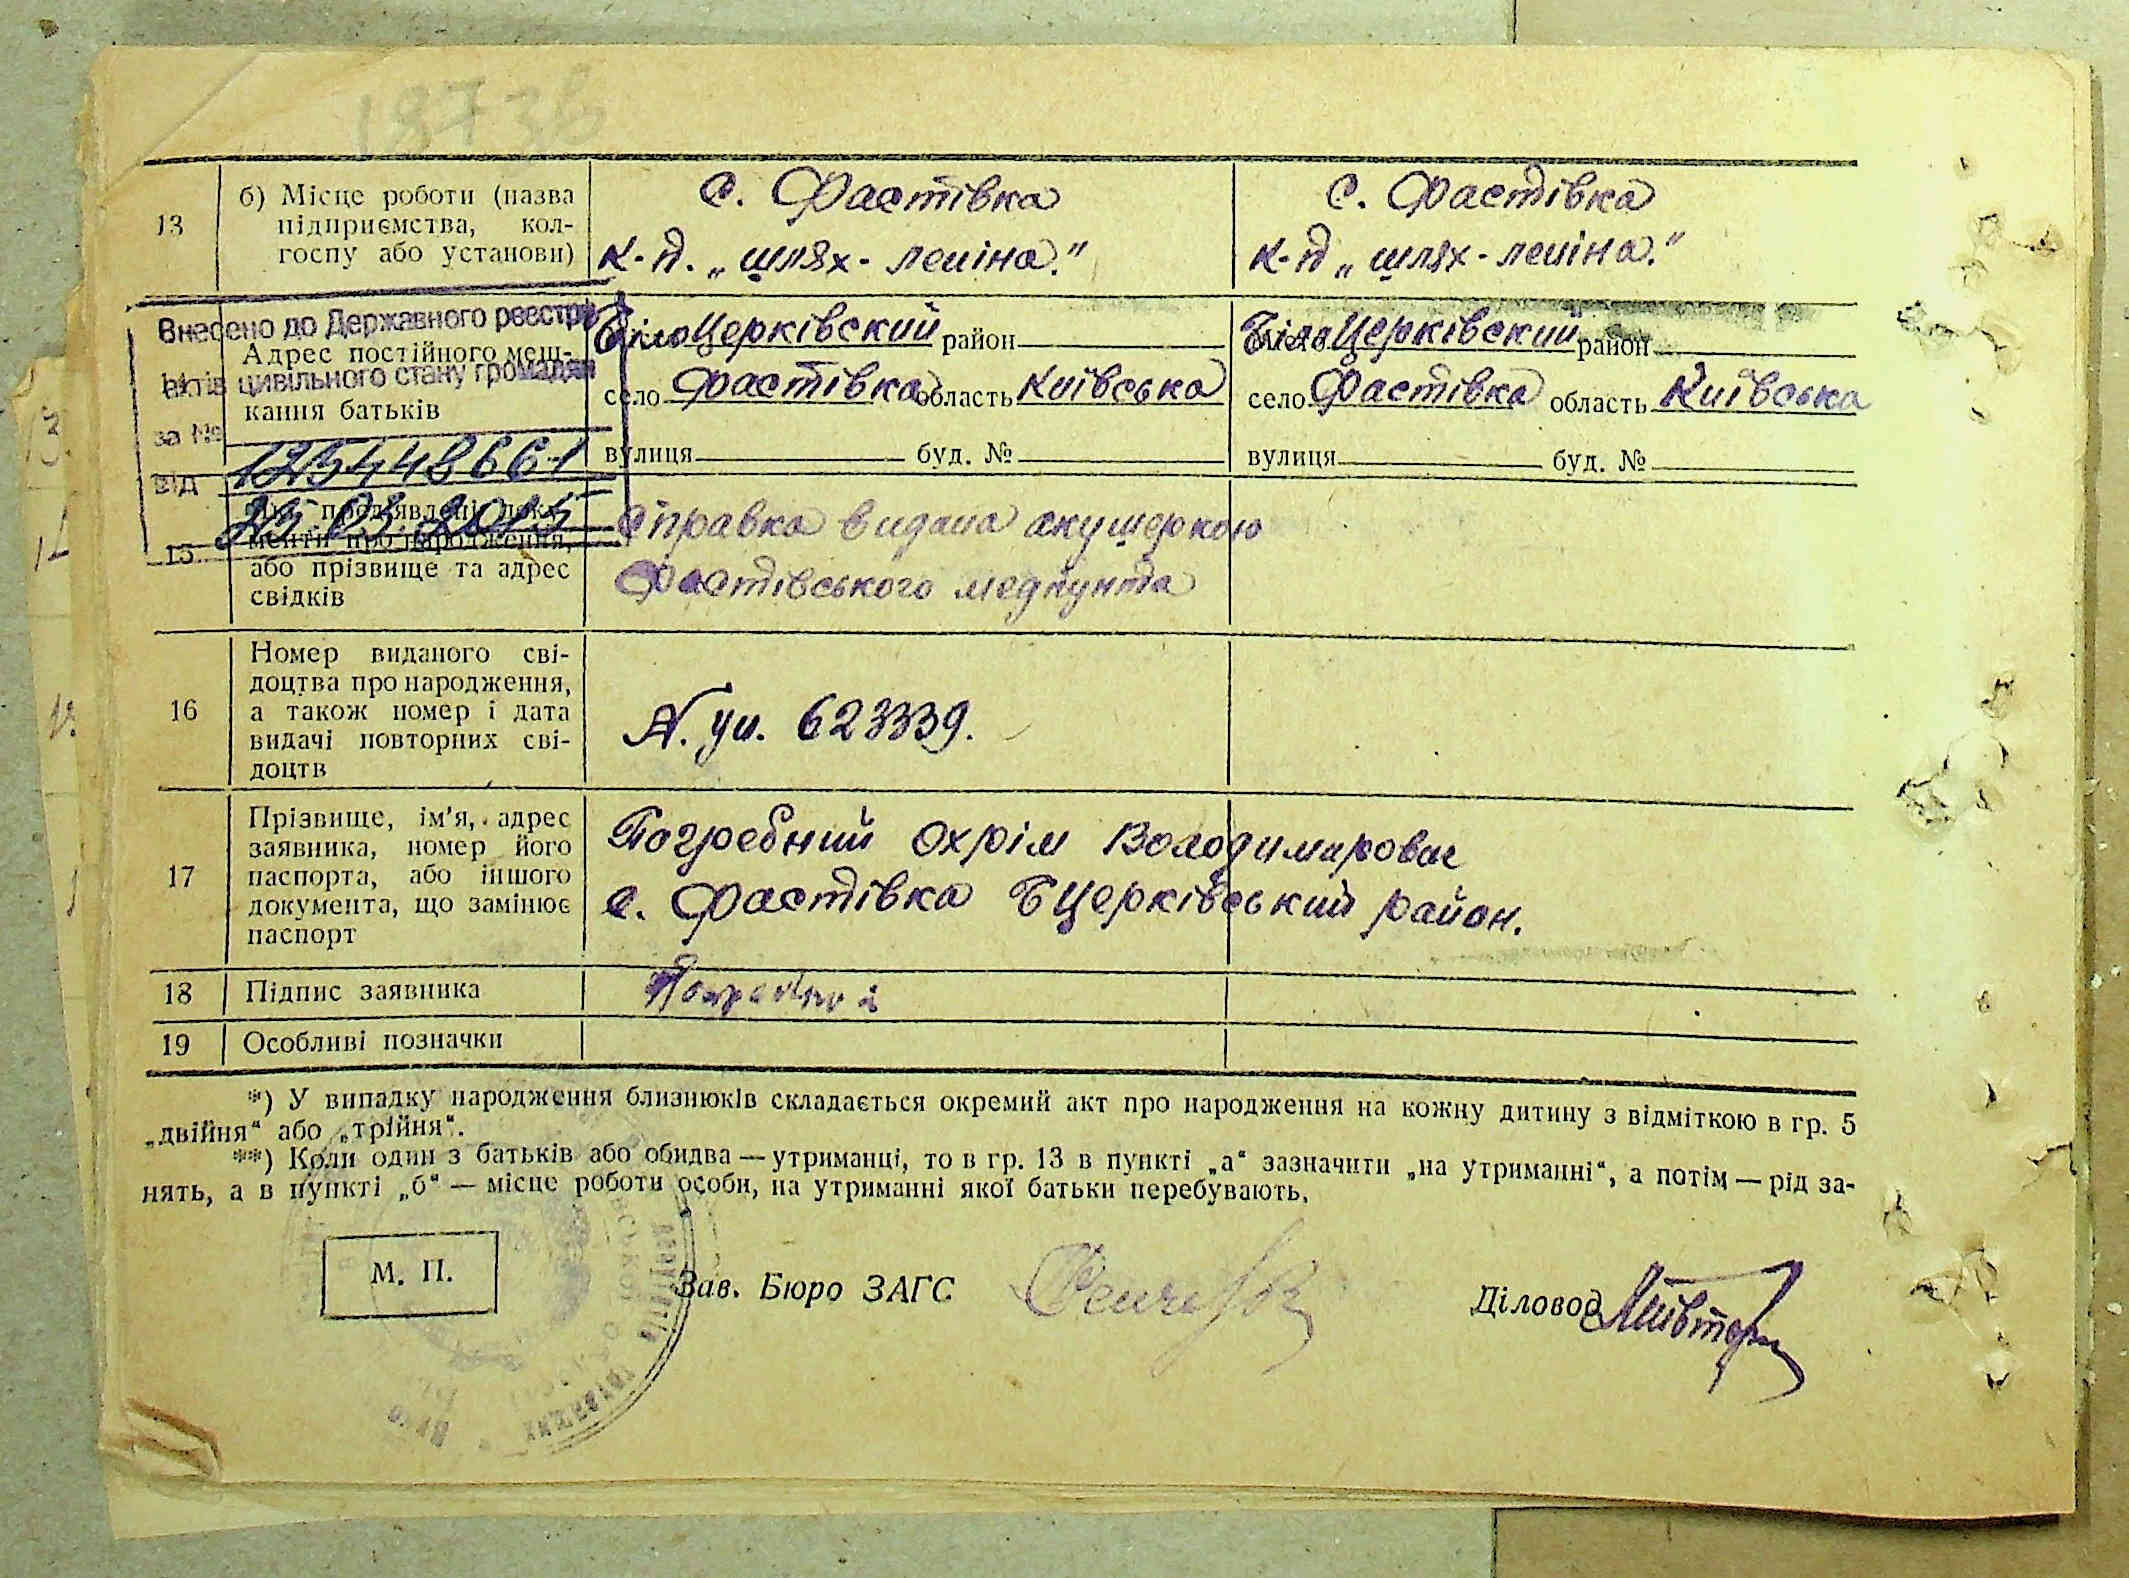 1873в
13
б) Місце роботи (назва
підприємства, кол-
госпу або установи)
с. Фастівка
к-п. „шлях-леніна."
с. Фастівка
к-п „шлях-леніна."
Внесено до Державного реєстру
актів цивільного стану громадян
за № 125448661
від 25 03 2015
Адрес постійного меш-
кання батьків
БілоЦерківский район
село Фастівка область Київська
вулиця буд. №
БілоЦерківский район
село Фастівка область Київська
вулиця буд. №
15
пред'явлені доку-
менти про народження,
або прізвище та адрес
свідків
Справка видана акушеркою
Фастівського медпункта
16
Номер виданого сві-
доцтва про народження,
а також номер і дата
видачі повторних сві-
доцтв
623339.
17
Прізвище, ім'я, адрес
заявника, номер його
паспорта, або іншого
документа, що замінює
паспорт
Погребний Охрім Володимирович
с. Фастівка БЦерківський район.
18
Підпис заявника
19
Особливі позначки
*) У випадку народження близнюків складається окремий акт про народження на кожну дитину з відміткою в гр. 5
„двійня“ або „трійня“.
**) Коли один з батьків або обидва — утриманці, то в гр. 13 в пункті „а“ зазначити „на утриманні“, а потім — рід за-
нять, а в пункті „б“ — місце роботи особи, на утриманні якої батьки перебувають.
М. П.
Зав. Бюро ЗАГС
Діловод